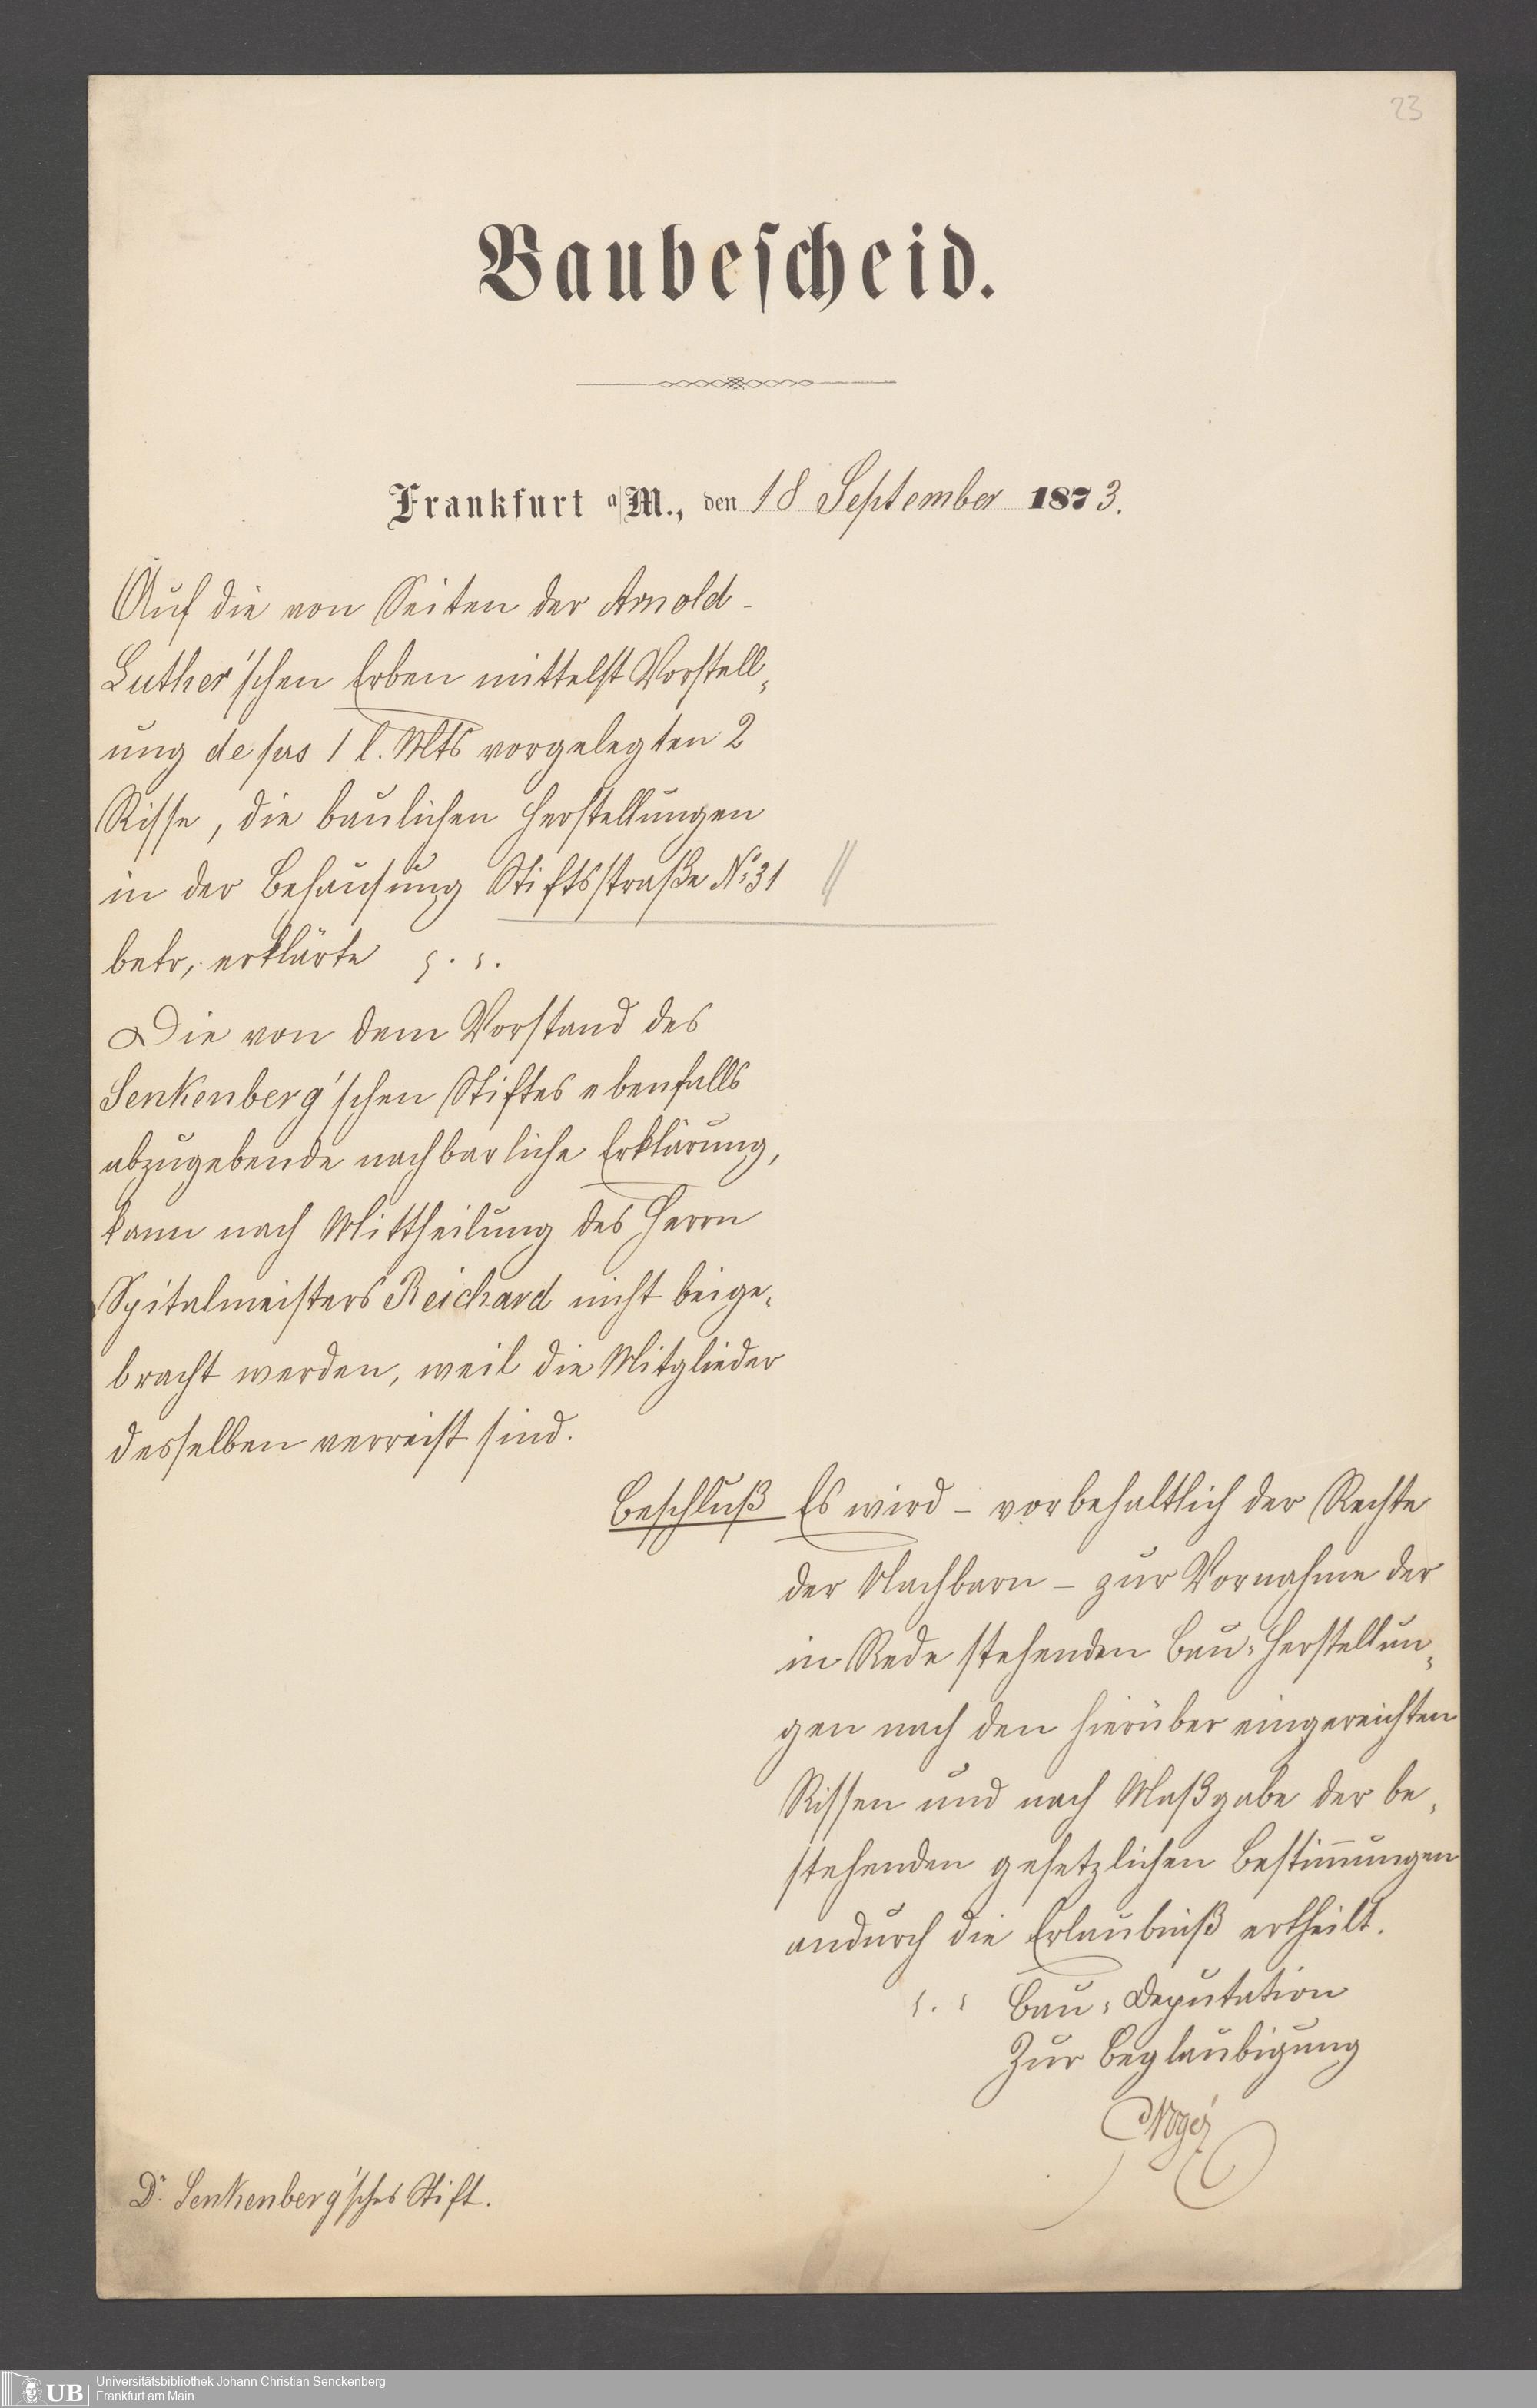 23
Baubescheid.
Frankfurt a/M., den 18 September 1873.
Auf die von Seiten der Arnold-
Luther'schen Erben mittelst Vorstell-
ung de prs 1 l. Mts vorgelegten 2
Risse, die baulichen Herstellungen
in der Behausung Stiftsstraße No 31
betr., erklärte
Die von dem Vorstand des
Senkenberg'schen Stiftes ebenfalls
abzugebende nachbarliche Erklärung,
kann nach Mittheilung des Herrn
Spitalmeisters Reichard nicht beige-
bracht werden, weil die Mitglieder
desselben verreist sind.
Beschluß Es wird – vorbehaltlich der Rechte
der Nachbarn – zur Vornahme der
in Rede stehenden Bau-Herstellun-
gen nach den hierüber eingereichten
Rissen und nach Maßgabe der be-
stehenden gesetzlichen Bestimmungen
andurch die Erlaubniß ertheilt.
Bau-Deputation
Zur Beglaubigung
Dr. Senkenberg'sches Stift.
UB Universitätsbibliothek Johann Christian Senckenberg
Frankfurt am Main